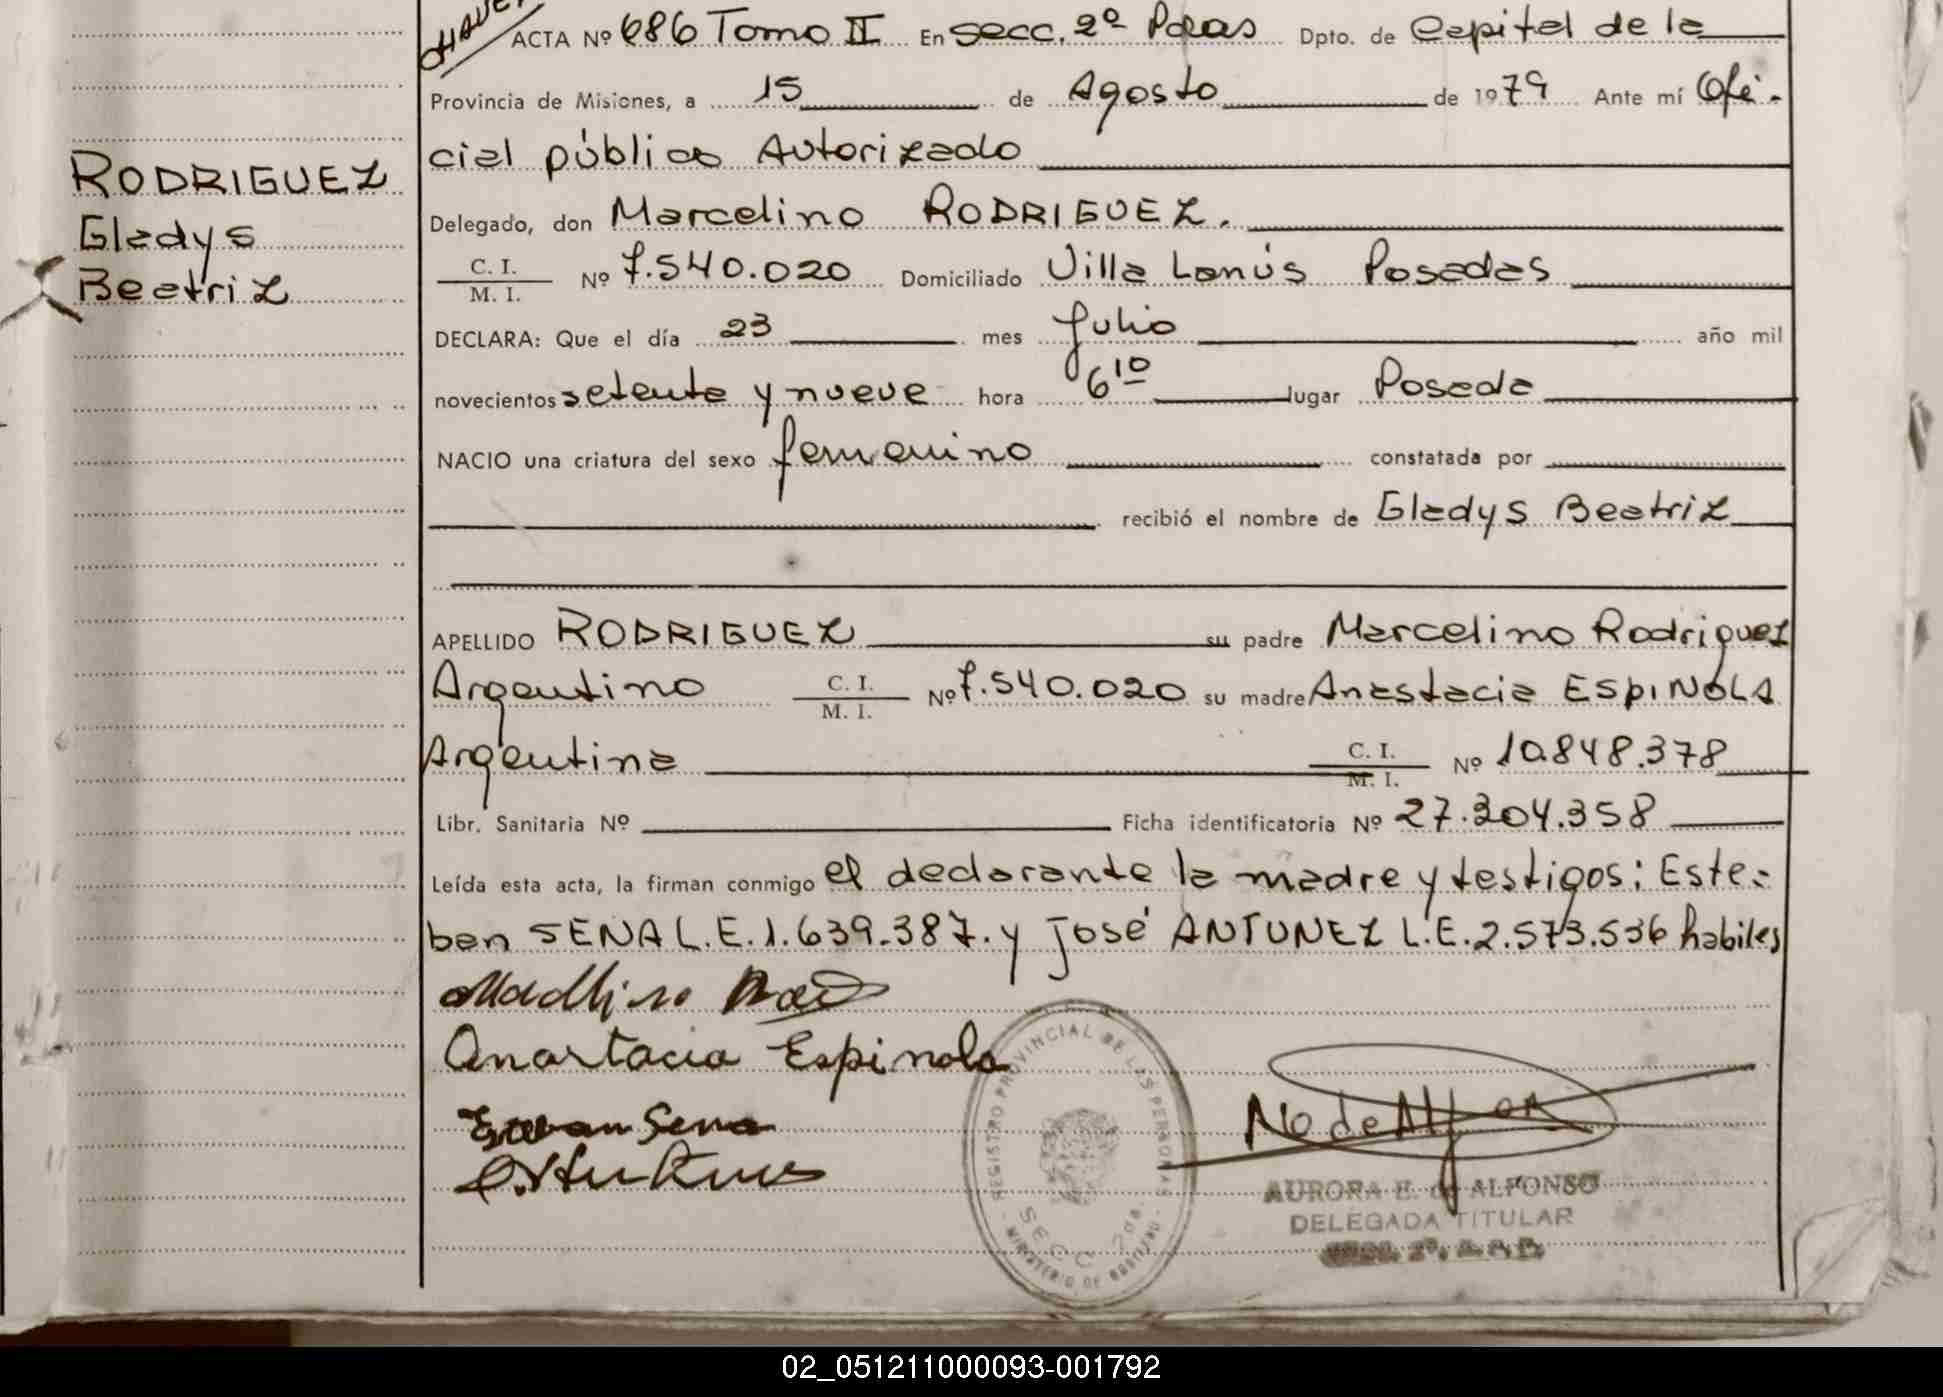 ACTA Nº 686 Tomo II En Secc. 2º Pdas Dpto. de Capital de la
Provincia de Misiones, a 15 de Agosto de 1979 Ante mí Ofi-
cial público Autorizado
RODRIGUEZ
Gladys
Beatriz
Delegado, don Marcelino RODRIGUEZ.
C. I.
M. I.
Nº 7.540.020 Domiciliado Villa Lanús Posadas
DECLARA: Que el día 23 mes Julio año mil
novecientos setenta y nueve hora 6 10 lugar Posada
NACIO una criatura del sexo femenino constatada por
recibió el nombre de Gladys Beatriz
APELLIDO RODRIGUEZ su padre Marcelino Rodriguez
Argentino C. I. M. I. Nº 7.540.020 su madre Anastacia ESPINOLA
Argentina C. I. M. I. Nº 10.848.378
Libr. Sanitaria Nº Ficha identificatoria Nº 27.304.358
Leída esta acta, la firman conmigo el declarante la madre y testigos: Este-
ban SENA L.E. 1.639.387. y José ANTUNEZ L.E. 2.573.536 habiles
Anastacia Espinola
Esteban Sena
REGISTRO PROVINCIAL DE LAS PERSONAS
SECC 2da.
MINISTERIO DE GOBIERNO
AURORA E. de ALFONSO
DELEGADA TITULAR
02_051211000093-001792